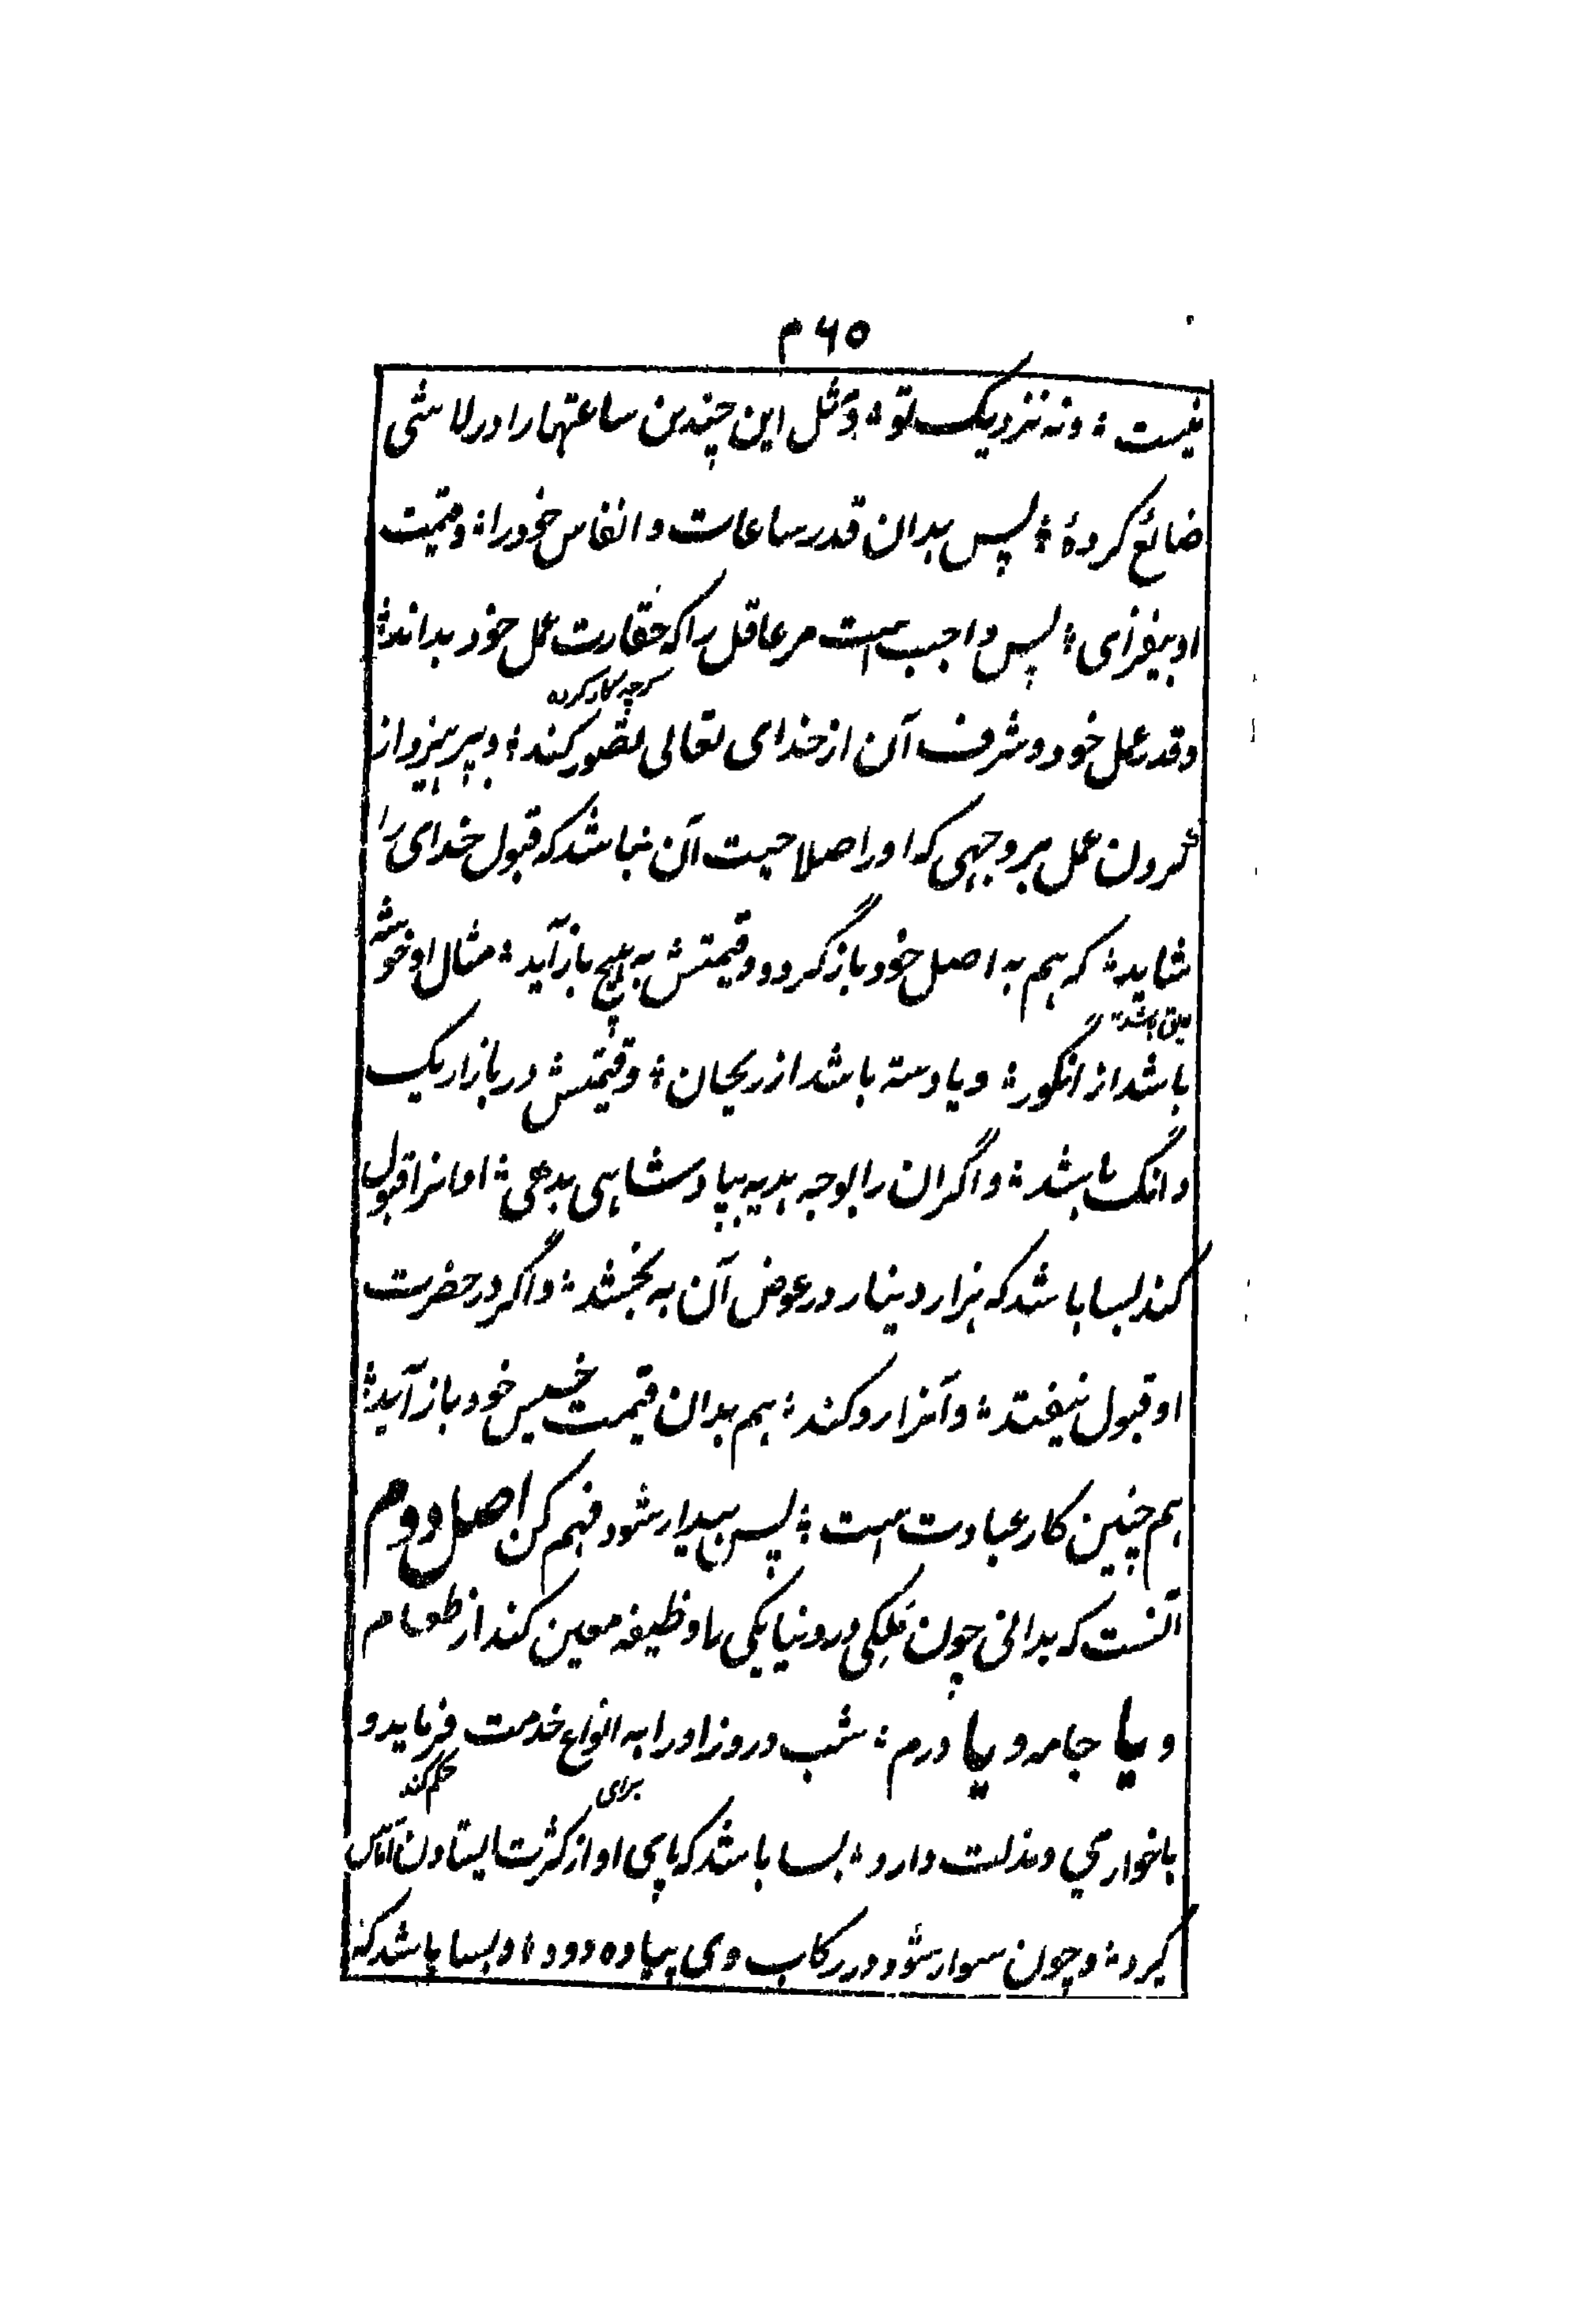 ۴۶۵
نیست ؛ ونه نزدیک تو ؛ ومثل این چندین ساعتهارا در لاشی
ضائع کردهٔ ؛ پس بدان قدر ساعات و انفاس خود را ؛ وقیمت
او بیفزای ؛ پس واجب است مر عاقل را که حقارت عمل خود بداند ؛
وقدر عمل خود و شرف آن از خدای تعالی تصور کند ؛ و بپرهیزد از
کردن عمل بر وجهی که او را صلاحیت آن نباشد که قبول خدای را
شاید ؛ که هم به اصل خود باز گردد و قیمتش به هیچ باز آید ؛ مثال او خوشه
باشد از انگور ؛ ویا دسته باشد از ریحان ؛ وقیمتش در بازار یک
دانگ باشد ؛ واگر آن را بوجه هدیه بپادشاهی بدهی ؛ او آنرا قبول
کند بسا باشد که هزار دینار در عوض آن به بخشد ؛ واگر در حضرت
او قبول نیفتد ؛ وآنرا رد کند ؛ هم بدان قیمت خسیس خود باز آید ؛
هم چنین کار عبادت است ؛ پس بیدار شو و فهم کن اصل دوم
آنست که بدانی چون ملکی در دنیا یکی را وظیفه معین کند از طعام
و یا جامه و یا درم ؛ شب و روز او را به انواع خدمت فرماید و
حکم کند
برای
باخواری ومذلت دارد ؛ بسا باشد که پای او از کثرت ایستادن آماس
گیرد ؛ وچون سوار شود در رکاب وی پیاده دود ؛ وبسا باشد که